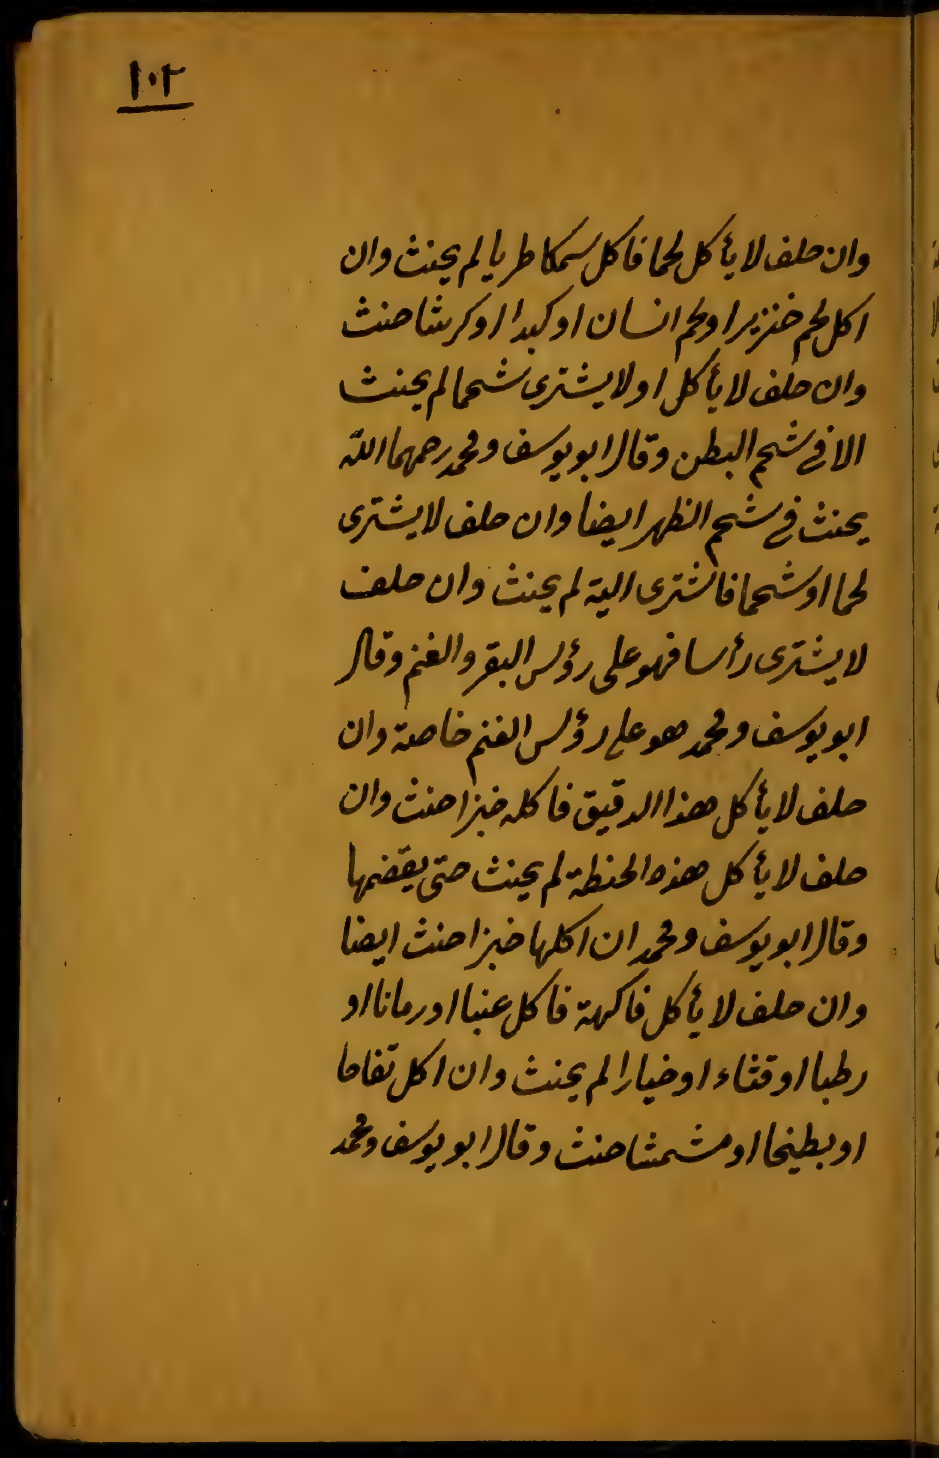 ١٠٢
وان حلف لا يأكل لحما فاكل سمكا طريا لم يحنث وان
اكل لحم خنزيرا ولحم انسان او كبدا او كرشا حنث
وان حلف لا يأكل او لا يشترى شحما لم يحنث
الا في شحم البطن وقال ابو يوسف ومحمد رحمهما الله
يحنث في شحم الظهر ايضا وان حلف لا يشترى
لحما او شحما فاشترى الية لم يحنث وان حلف
لا يشترى رأسا فهو على رؤس البقر والغنم وقال
ابو يوسف ومحمد هو على رؤس الغنم خاصة وان
حلف لا يأكل هذا الدقيق فاكله خبزا حنث وان
حلف لا يأكل هذه الحنطة لم يحنث حتى يقضمها
وقال ابو يوسف ومحمد ان اكلها خبزا حنث ايضا
وان حلف لا يأكل فاكهة فاكل عنبا او رمانا او
رطبا او قثاء او خيارا لم يحنث وان اكل تفاحا
او بطيخا او مشمشا حنث وقال ابو يوسف ومحمد